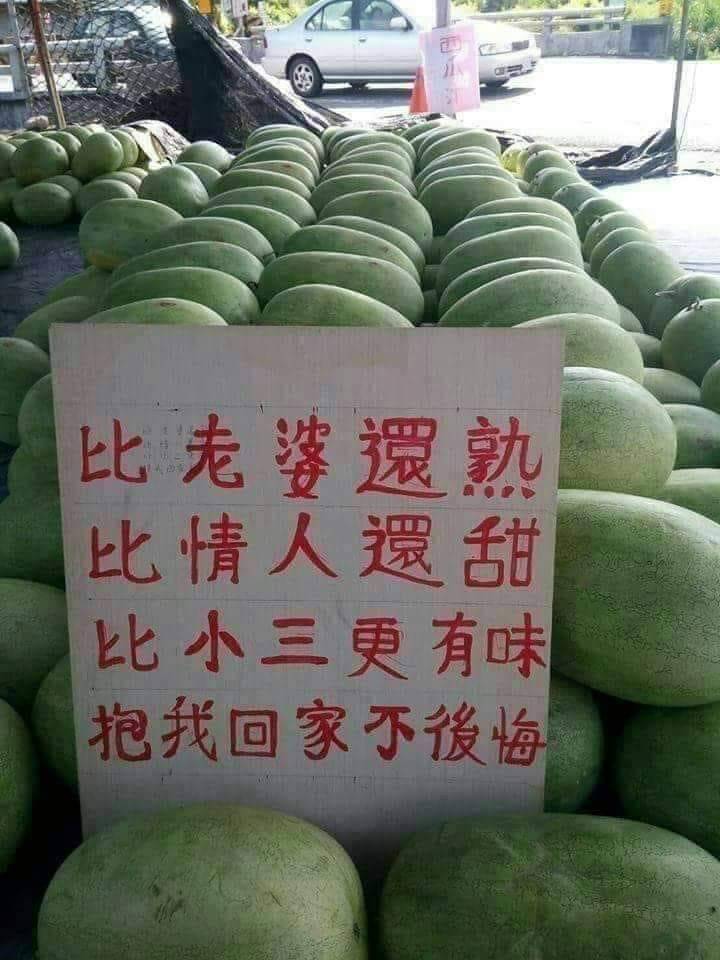 西瓜
比老婆還熟
比情人還甜
比小三更有味
抱我回家不後悔